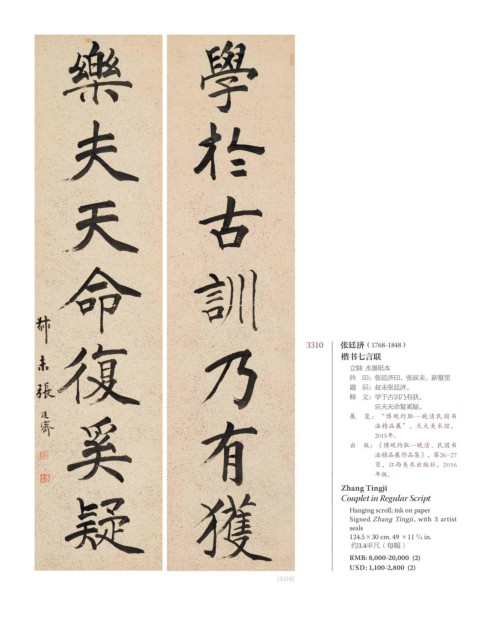 學於古訓乃有獲
樂夫天命復奚疑
尗未張廷濟
3310
张廷济（1768-1848）
楷书七言联
立轴 水墨纸本
钤 印：张廷济印、张叔未、新篁里
题 识：叔未张廷济。
释 文：学于古训乃有获，
乐夫天命复奚疑。
展 览：“博观约取—晚清民国书
法精品展”，天大美术馆，
2015年。
出 版：《博观约取—晚清、民国书
法精品展作品集》，第26-27
页，江西美术出版社，2016
年版。
Zhang Tingji
Couplet in Regular Script
Hanging scroll; ink on paper
Signed Zhang Tingji, with 3 artist
seals
124.5 × 30 cm. 49 × 11 3/4 in.
约3.4平尺（每幅）
RMB: 8,000-20,000 (2)
USD: 1,100-2,800 (2)
[3310]